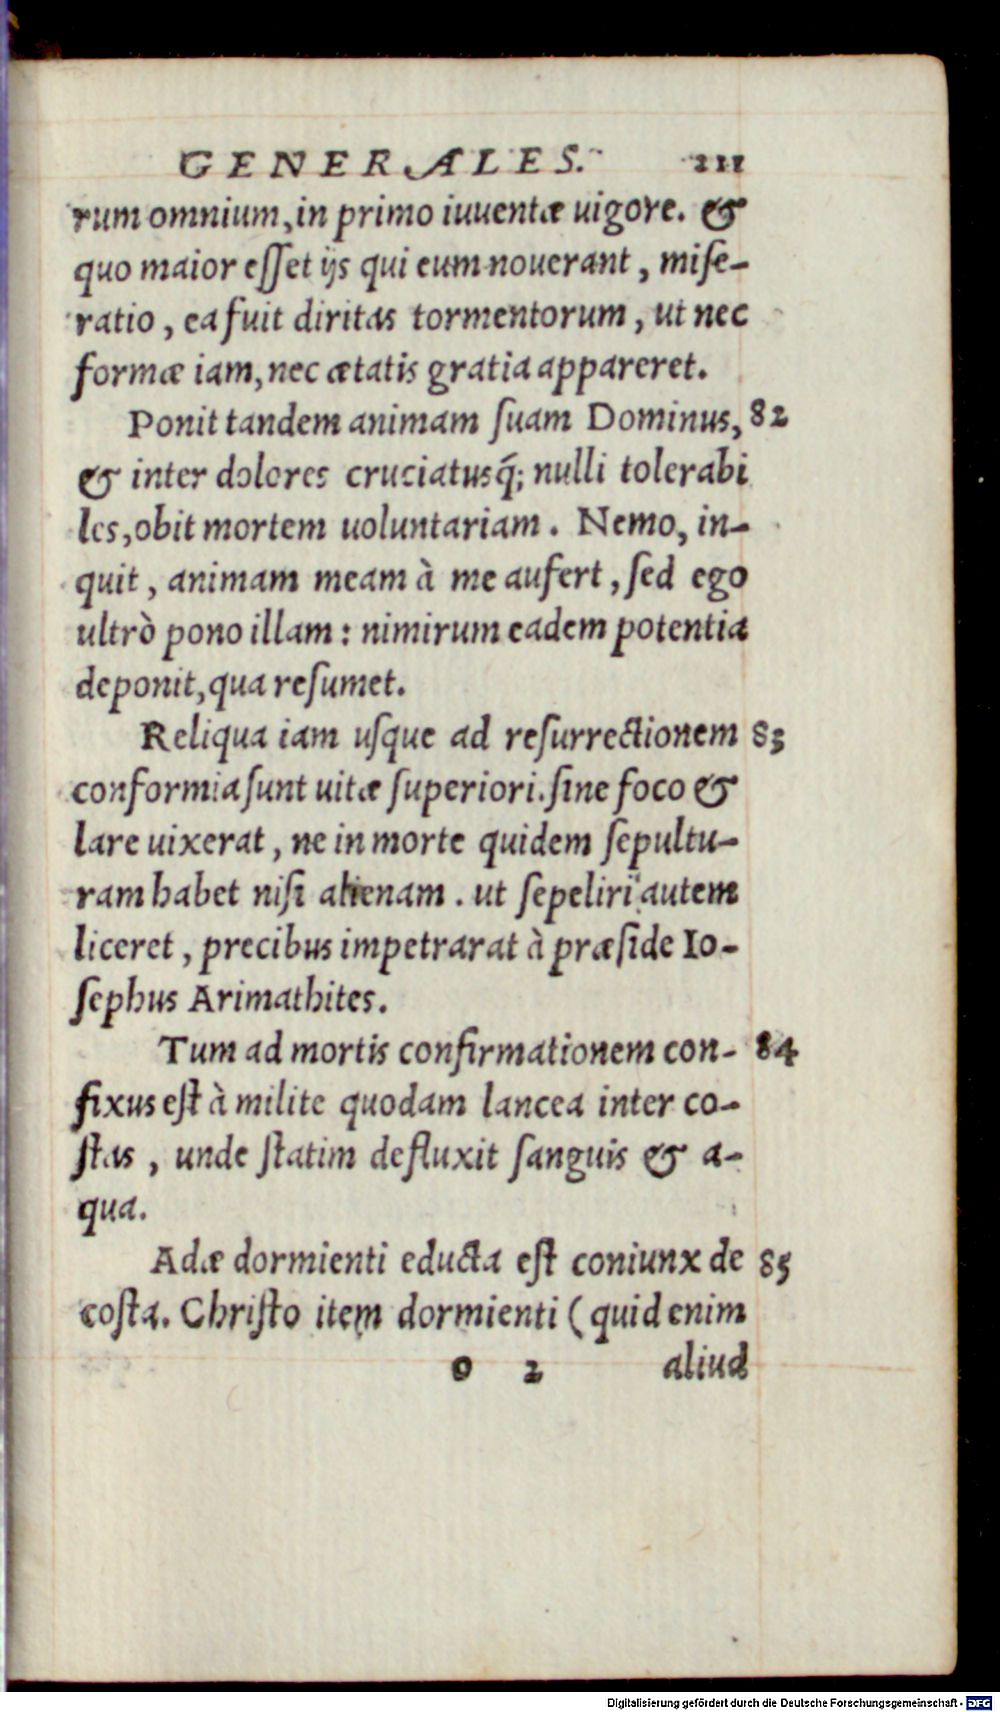 GENERALES. 211
rum omnium, in primo iuuentæ uigore. &
quo maior eſſet ijs qui eum nouerant, miſe-
ratio, ea fuit diritas tormentorum, ut nec
formæ iam, nec ætatis gratia appareret.
Ponit tandem animam ſuam Dominus, 82
& inter dolores cruciatusq́; nulli tolerabi
les, obit mortem uoluntariam. Nemo, in-
quit, animam meam à me aufert, ſed ego
ultrò pono illam: nimirum eadem potentia
deponit, qua reſumet.
Reliqua iam uſque ad reſurrectionem 83
conformia ſunt uitæ ſuperiori. ſine foco &
lare uixerat, ne in morte quidem ſepultu-
ram habet niſi alienam. ut ſepeliri autem
liceret, precibus impetrarat à præſide Io-
ſephus Arimathites.
Tum ad mortis confirmationem con- 84
fixus eſt à milite quodam lancea inter co-
ſtas, unde ſtatim defluxit ſanguis & a-
qua.
Adæ dormienti educta eſt coniunx de 85
coſta. Chriſto item dormienti (quid enim
o 2 aliud
Digitalisierung gefördert durch die Deutsche Forschungsgemeinschaft - DFG